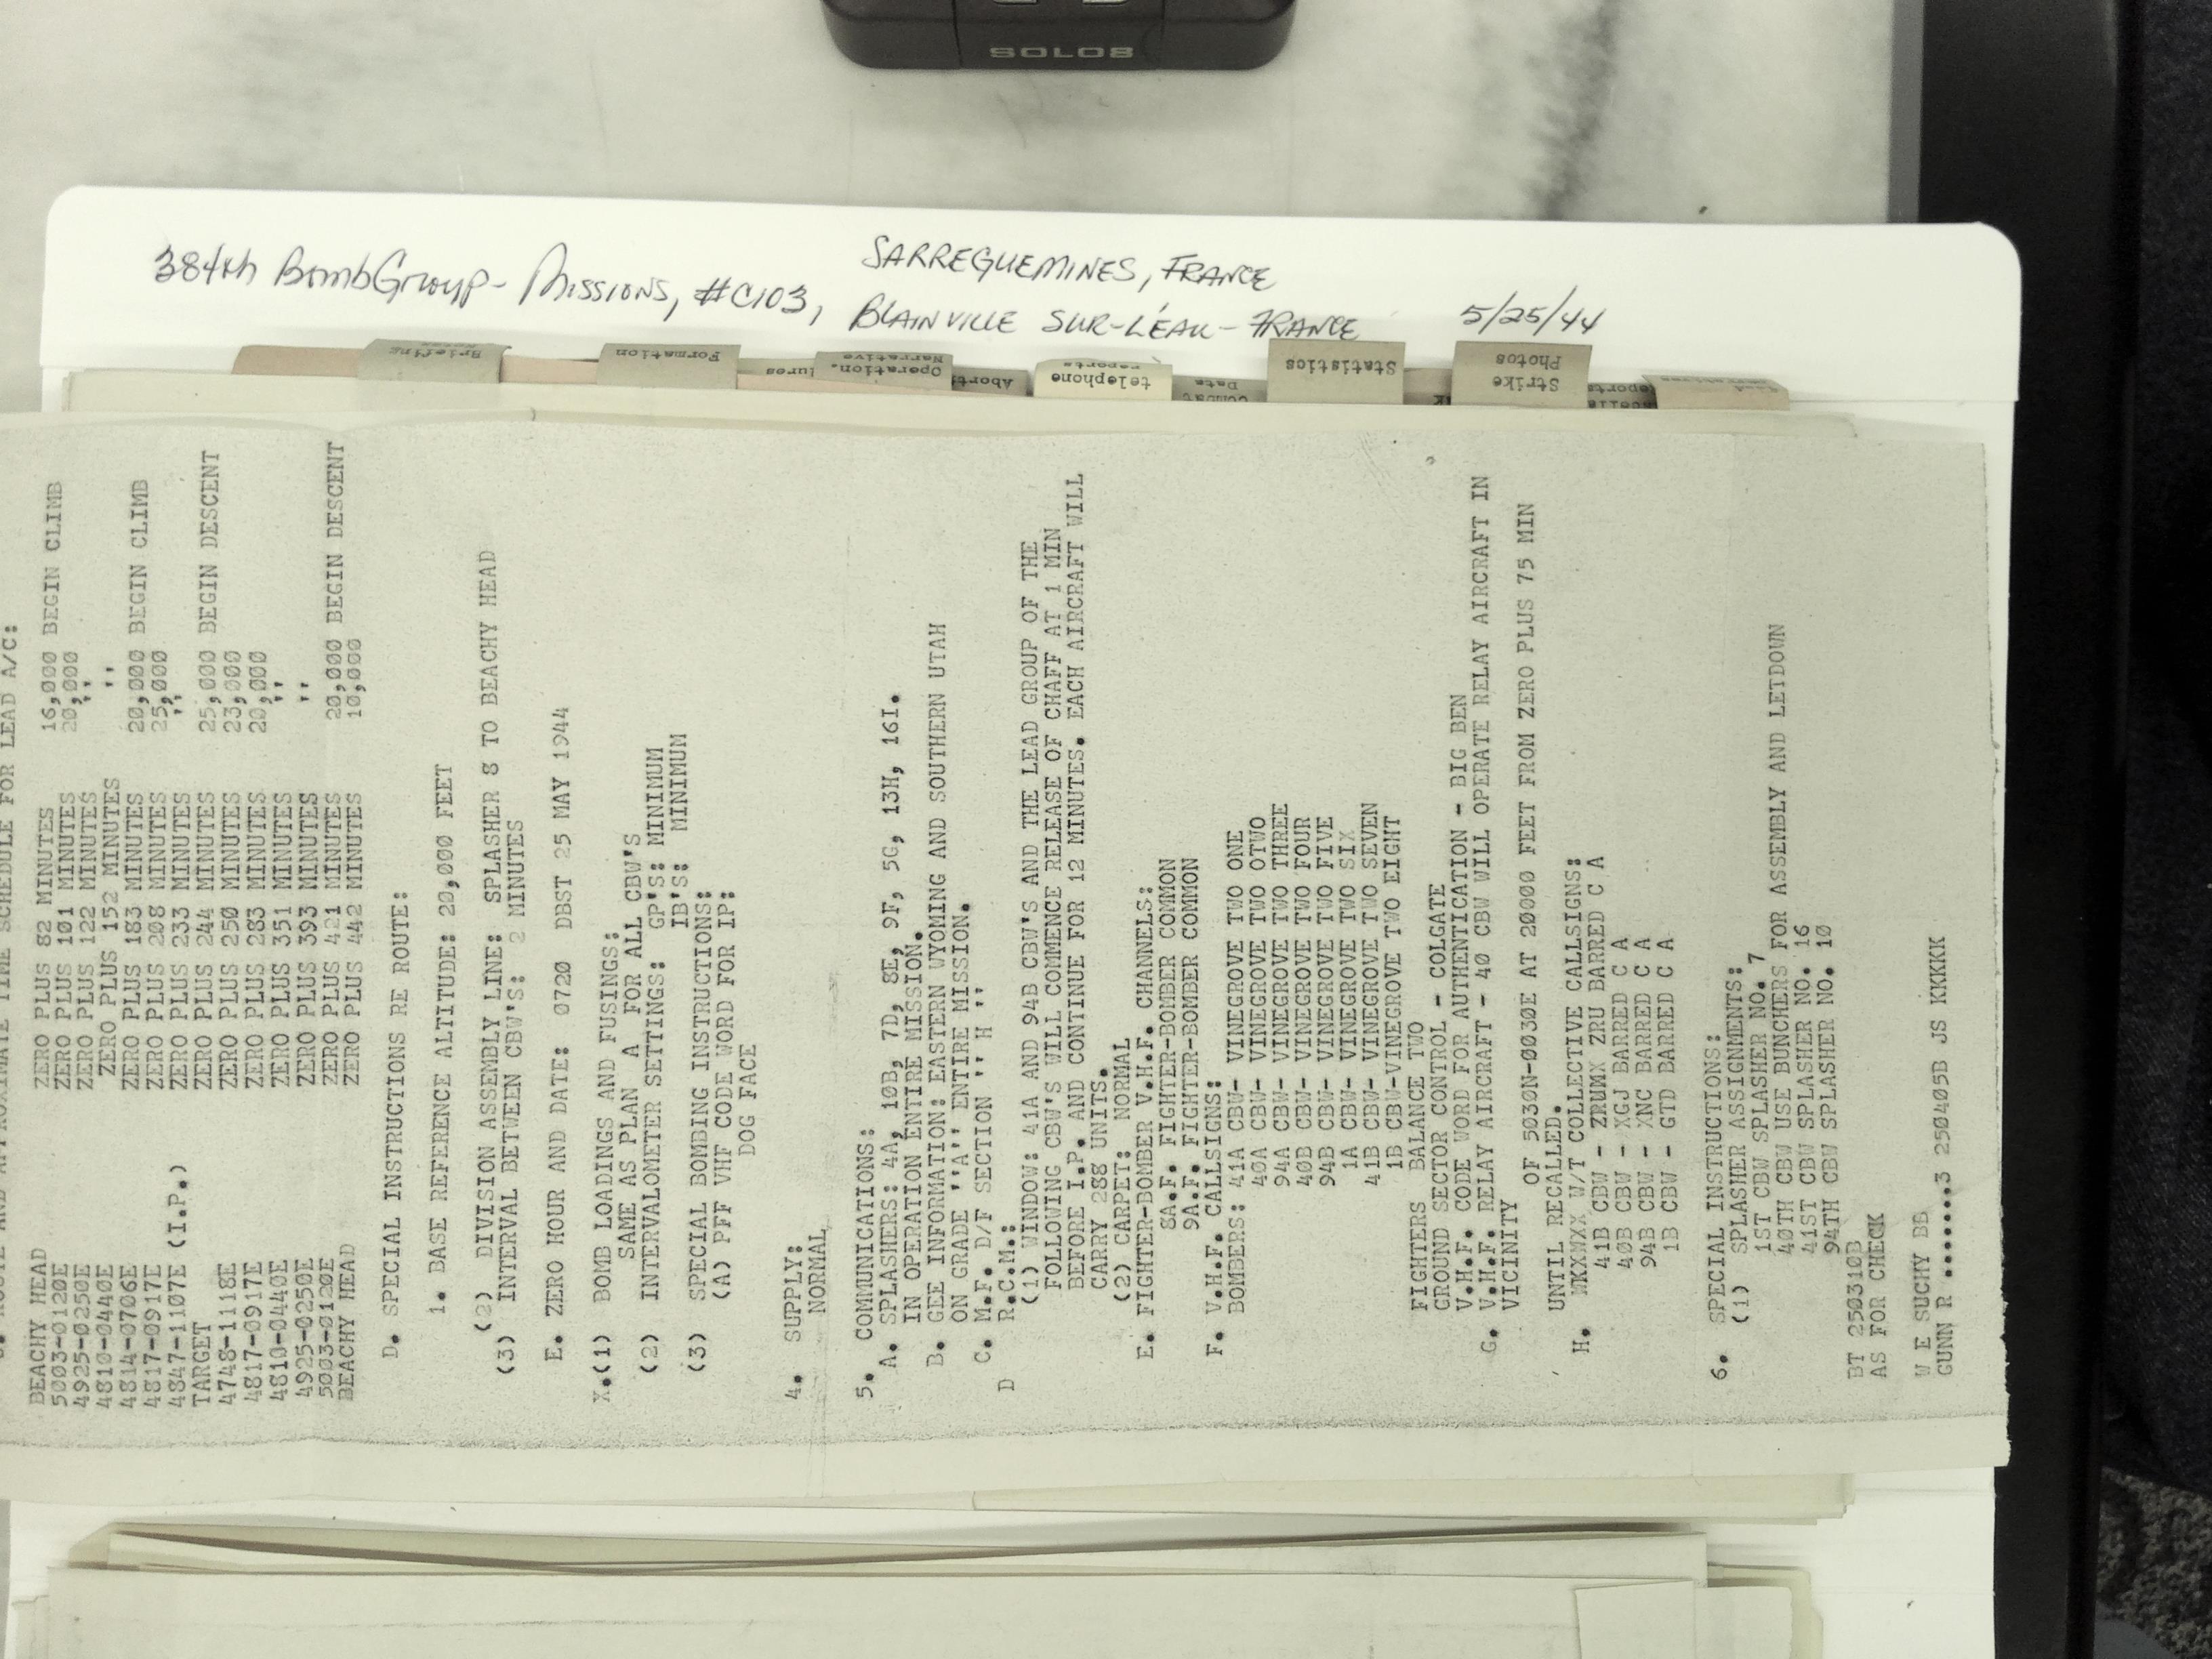 SOLO8
384th BombGroup - Missions, #C103,
SARREGUEMINES, FRANCE
BLAINVILLE SUR-L'EAU - FRANCE
5/25/44
Briefing
Formation
Operation.
Narrative
Abort
telephone
reports
Combat
Data
Statistics
Strike
Photos
ROUTE AND APPROXIMATE TIME SCHEDULE FOR LEAD A/C:
BEACHY HEAD ZERO PLUS 82 MINUTES 16,000 BEGIN CLIMB
5003-0120E ZERO PLUS 101 MINUTES 20,000
4925-0250E ZERO PLUS 122 MINUTES ''
4810-0440E ZERO PLUS 152 MINUTES ''
4814-0706E ZERO PLUS 183 MINUTES 20,000 BEGIN CLIMB
4817-0917E ZERO PLUS 208 MINUTES 25,000
4847-1107E (I.P.) ZERO PLUS 233 MINUTES ''
TARGET ZERO PLUS 244 MINUTES 25,000 BEGIN DESCENT
4748-1118E ZERO PLUS 250 MINUTES 23,000
4817-0917E ZERO PLUS 283 MINUTES 20,000
4810-0440E ZERO PLUS 351 MINUTES ''
4925-0250E ZERO PLUS 393 MINUTES ''
5003-0120E ZERO PLUS 421 MINUTES 20,000 BEGIN DESCENT
BEACHY HEAD ZERO PLUS 442 MINUTES 10,000
D. SPECIAL INSTRUCTIONS RE ROUTE:
1. BASE REFERENCE ALTITUDE: 20,000 FEET
(2) DIVISION ASSEMBLY LINE: SPLASHER 8 TO BEACHY HEAD
(3) INTERVAL BETWEEN CBW'S: 2 MINUTES
E. ZERO HOUR AND DATE: 0720 DBST 25 MAY 1944
X.(1) BOMB LOADINGS AND FUSINGS:
SAME AS PLAN A FOR ALL CBW'S
(2) INTERVALOMETER SETTINGS: GP'S: MINIMUM
IB'S: MINIMUM
(3) SPECIAL BOMBING INSTRUCTIONS:
(A) PFF VHF CODE WORD FOR IP:
DOG FACE
4. SUPPLY:
NORMAL
5. COMMUNICATIONS:
A. SPLASHERS: 4A, 10B, 7D, 8E, 9F, 5G, 13H, 16I.
IN OPERATION ENTIRE MISSION.
B. GEE INFORMATION: EASTERN WYOMING AND SOUTHERN UTAH
ON GRADE ''A'' ENTIRE MISSION.
C. M.F. D/F SECTION ''H''
D R.C.M.:
(1) WINDOW: 41A AND 94B CBW'S AND THE LEAD GROUP OF THE
FOLLOWING CBW'S WILL COMMENCE RELEASE OF CHAFF AT 1 MIN
BEFORE I.P. AND CONTINUE FOR 12 MINUTES. EACH AIRCRAFT WILL
CARRY 288 UNITS.
(2) CARPET: NORMAL
E. FIGHTER-BOMBER V.H.F. CHANNELS:
8A.F. FIGHTER-BOMBER COMMON
9A.F. FIGHTER-BOMBER COMMON
F. V.H.F. CALLSIGNS:
BOMBERS: 41A CBW- VINEGROVE TWO ONE
40A CBW- VINEGROVE TWO OTWO
94A CBW- VINEGROVE TWO THREE
40B CBW- VINEGROVE TWO FOUR
94B CBW- VINEGROVE TWO FIVE
1A CBW- VINEGROVE TWO SIX
41B CBW- VINEGROVE TWO SEVEN
1B CBW-VINEGROVE TWO EIGHT
FIGHTERS BALANCE TWO
GROUND SECTOR CONTROL - COLGATE
V.H.F. CODE WORD FOR AUTHENTICATION - BIG BEN
G. V.H.F. RELAY AIRCRAFT - 40 CBW WILL OPERATE RELAY AIRCRAFT IN
VICINITY
OF 5030N-0030E AT 20000 FEET FROM ZERO PLUS 75 MIN
UNTIL RECALLED.
H. WKXWXX W/T COLLECTIVE CALLSIGNS:
41B CBW - ZRUMX ZRU BARRED C A
40B CBW - XGJ BARRED C A
94B CBW - XNC BARRED C A
1B CBW - GTD BARRED C A
6. SPECIAL INSTRUCTIONS:
(1) SPLASHER ASSIGNMENTS:
1ST CBW SPLASHER NO. 7
40TH CBW USE BUNCHERS FOR ASSEMBLY AND LETDOWN
41ST CBW SPLASHER NO. 16
94TH CBW SPLASHER NO. 10
BT 250310B
AS FOR CHECK
W E SUCHY BB
GUNN R .......3 250405B JS KKKKK